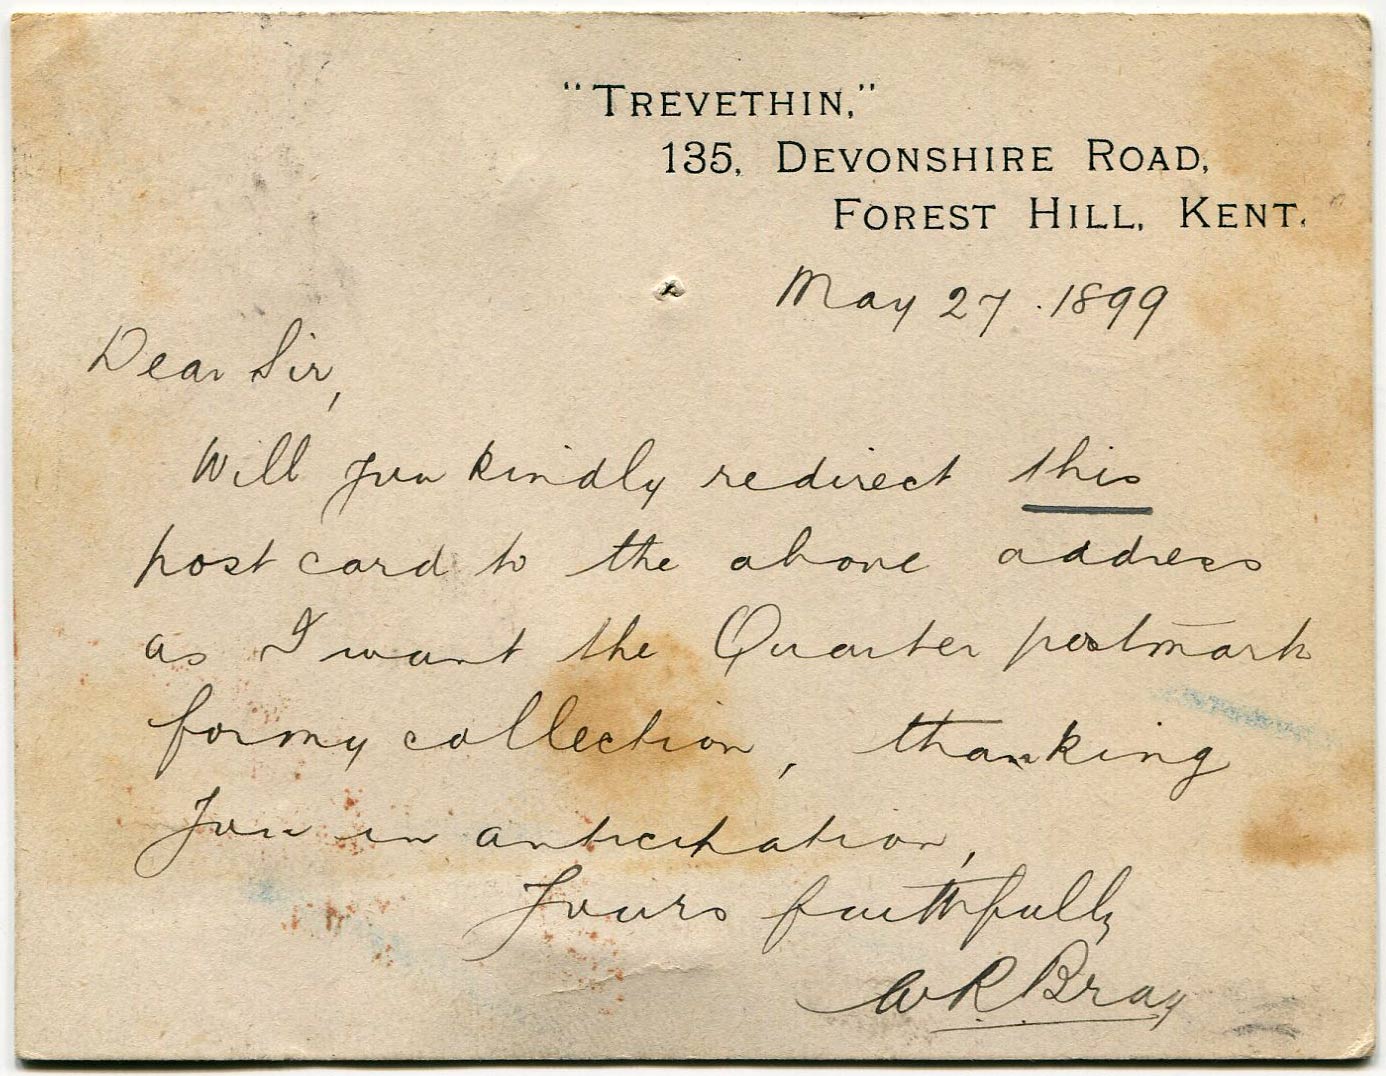 "TREVETHIN,"
135, DEVONSHIRE ROAD,
FOREST HILL, KENT.
May 27. 1899
Dear Sir,
Will you kindly redirect this
post card to the above address
as I want the Quarter postmark
for my collection, thanking
you in anticipation,
Yours faithfully
WR Bray